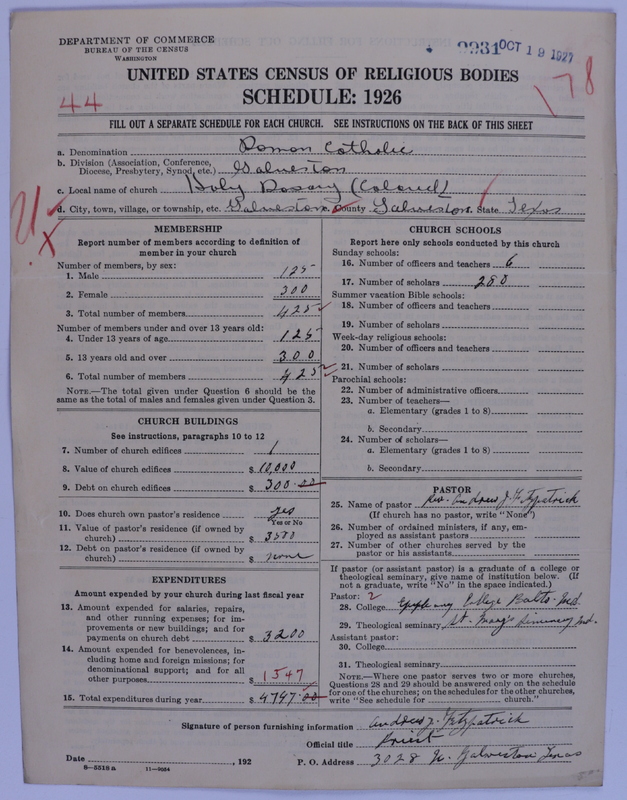 DEPARTMENT OF COMMERCE
BUREAU OF THE CENSUS
WASHINGTON
9931 OCT 19 1927
UNITED STATES CENSUS OF RELIGIOUS BODIES
SCHEDULE: 1926
44
178
FILL OUT A SEPARATE SCHEDULE FOR EACH CHURCH. SEE INSTRUCTIONS ON THE BACK OF THIS SHEET
a. Denomination Roman Catholic
b. Division (Association, Conference, Diocese, Presbytery, Synod, etc.) Galveston
c. Local name of church Holy Rosary (Colored)
d. City, town, village, or township, etc. Galveston County Galveston State Texas
MEMBERSHIP
Report number of members according to definition of member in your church
Number of members, by sex:
1. Male 125
2. Female 300
3. Total number of members 425
Number of members under and over 13 years old:
4. Under 13 years of age 125
5. 13 years old and over 300
6. Total number of members 425
NOTE.—The total given under Question 6 should be same as the total of males and females given under Question 3.
CHURCH BUILDINGS
See instructions, paragraphs 10 to 12
7. Number of church edifices 1
8. Value of church edifices $ 10,000
9. Debt on church edifices $ 300.00
10. Does church own pastor's residence? yes
Yes or No
11. Value of pastor's residence (if owned by church) $ 3500
12. Debt on pastor's residence (if owned by church) $ none
EXPENDITURES
Amount expended by your church during last fiscal year
13. Amount expended for salaries, repairs, and other running expenses; for improvements or new buildings; and for payments on church debt $ 3200
14. Amount expended for benevolences, including home and foreign missions; for denominational support; and for all other purposes $ 1547
15. Total expenditures during year $ 4747.00
CHURCH SCHOOLS
Report here only schools conducted by this church
Sunday schools:
16. Number of officers and teachers 6
17. Number of scholars 280
Summer vacation Bible schools:
18. Number of officers and teachers
19. Number of scholars
Week-day religious schools:
20. Number of officers and teachers
21. Number of scholars
Parochial schools:
22. Number of administrative officers
23. Number of teachers—
a. Elementary (grades 1 to 8)
b. Secondary
24. Number of scholars—
a. Elementary (grades 1 to 8)
b. Secondary
PASTOR
25. Name of pastor Rev. Andrew J. Fitzpatrick
(If church has no pastor, write "None")
26. Number of ordained ministers, if any, employed as assistant pastors
27. Number of other churches served by the pastor or his assistants
If pastor (or assistant pastor) is a graduate of a college or theological seminary, give name of institution below. (If not a graduate, write "No" in the space indicated.)
Pastor: 2
28. College Epiphany College Balto. Md.
29. Theological seminary St. Mary's Seminary Md.
Assistant pastor:
30. College
31. Theological seminary
NOTE.—Where one pastor serves two or more churches, Questions 28 and 29 should be answered only on the schedule for one of the churches; on the schedules for the other churches, write "See schedule for church."
Signature of person furnishing information Andrew J. Fitzpatrick
Official title Priest
Date , 192
P. O. Address 3028 N. Galveston Texas
8—5518 a 11—9024